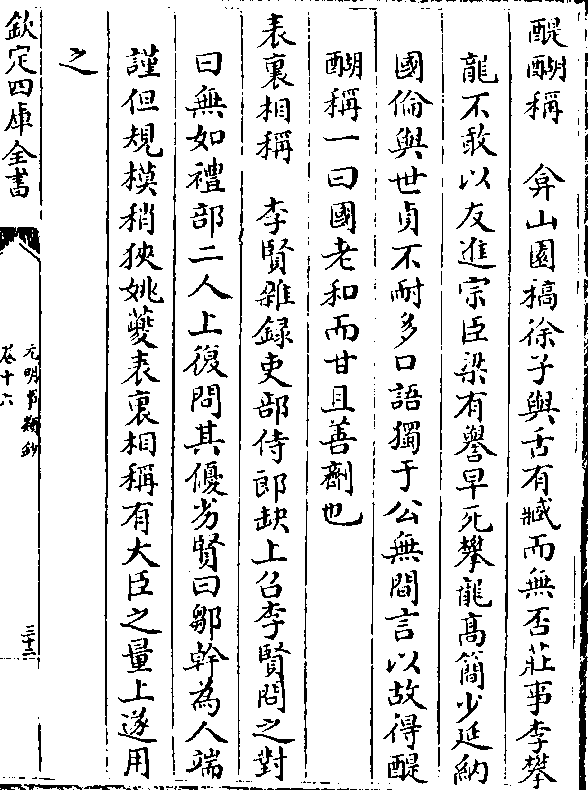 醍醐稱　弇山園槁徐子與舌有臧而無否莊事李攀
龍不敢以友進宗臣梁有譽早死攀龍髙簡少延納
國倫與世貞不耐多口語獨于公無間言以故得醍
醐稱一曰國老和而甘且善劑也
表裏相稱　李賢雜録吏部侍郎缺上召李賢問之對
曰無如禮部二人上復問其優劣賢曰鄒幹為人端
謹但規模稍狹姚夔表裏相稱有大臣之量上遂用
之
欽定四庫全書
元明事類鈔
卷十六
三十三